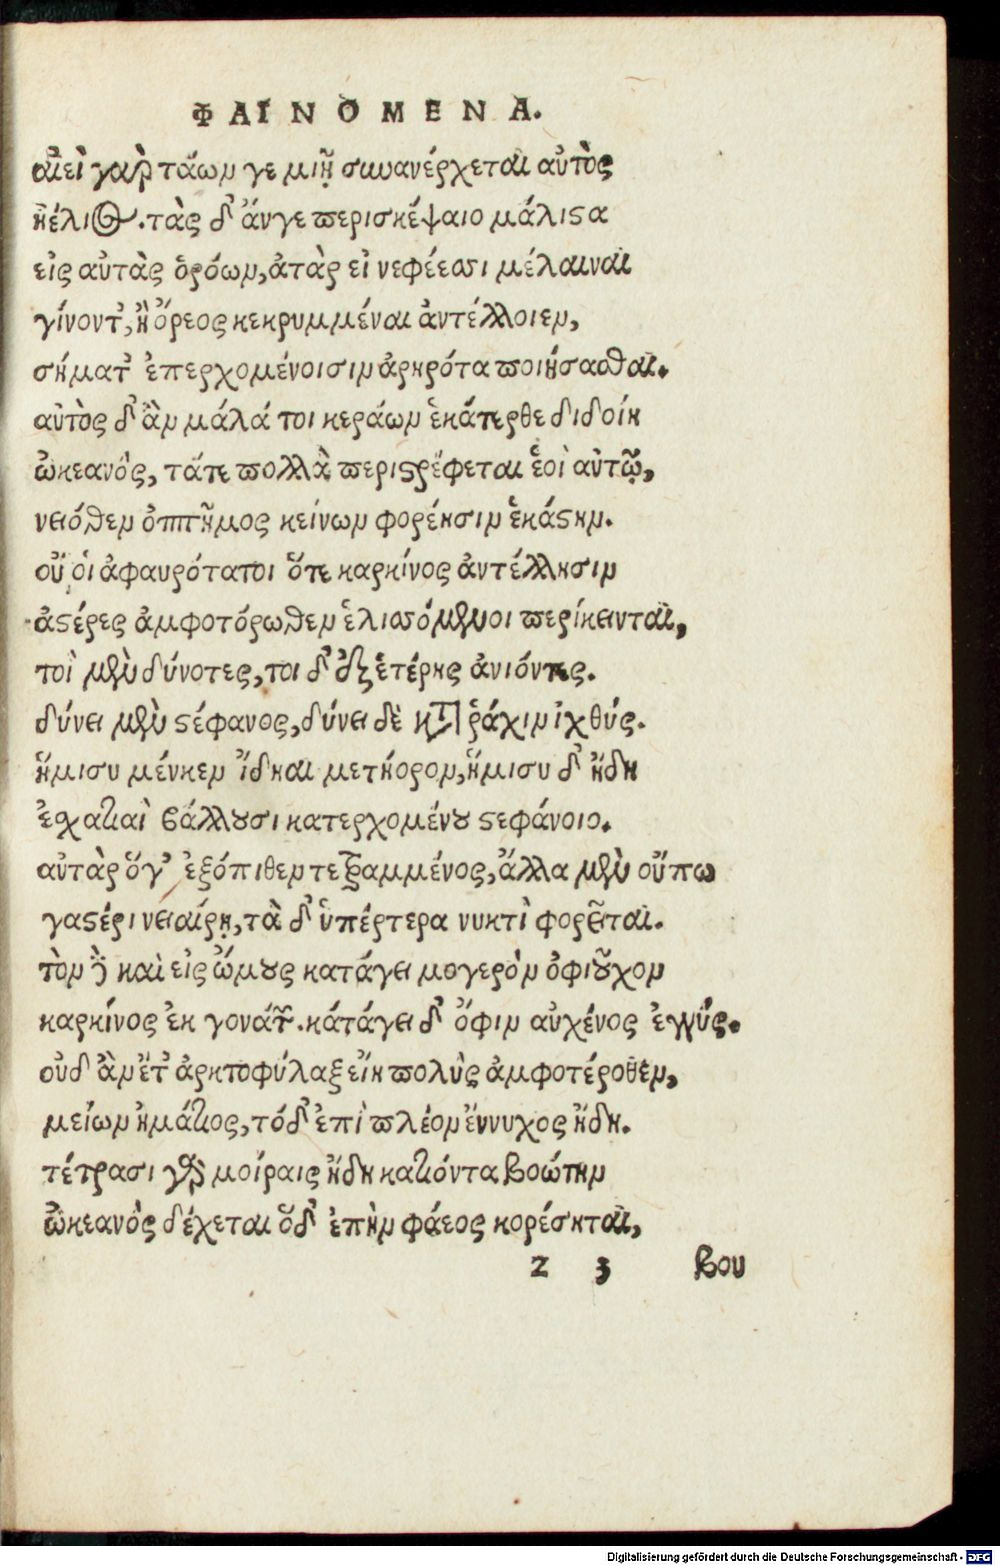 ΦΑΙΝΟΜΕΝΑ.
αἰεὶ γὰρ τάων γε μιῇ συνανέρχεται αὐτὸς
ἠέλιος. τὰς δ' ἄνγε περισκέψαιο μάλιστα
εἰς αὐτὰς ὁρόων, ἀτὰρ εἰ νεφέεσσι μέλαιναι
γίνοντ', ἢ ὄρεος κεκρυμμέναι ἀντέλλοιεν,
σήματ' ἐπερχομένοισιν ἀρηρότα ποιήσασθαι.
αὐτὸς δ' ἂν μάλά τοι κεράων ἑκάτερθε διδοίη
ὠκεανὸς, τάτε πολλὰ περιστρέφεται ἑοῖ αὐτῷ,
νειόθεν ὁππῆμος κείνων φορέησιν ἑκάστην.
οὔ οἱ ἀφαυρότατοι ὅτε καρκίνος ἀντέλλησιν
ἀστέρες ἀμφοτέρωθεν ἑλισσόμενοι περίκεινται,
τοὶ μὲν δύνοτες, τοι δ' ἐξ ἑτέρης ἀνιόντες.
δύνει μὲν στέφανος, δύνει δὲ κατὰ ῥάχιν ἰχθύς.
ἥμισυ μένκεν ἴδηαι μετήορον, ἥμισυ δ' ἤδη
ἐσχατιαὶ βάλλουσι κατερχομένου στεφάνοιο.
αὐτὰρ ὅγ' ἐξόπιθεν τετραμμένος, ἄλλα μὲν οὔπω
γαστέρι νειαίρῃ, τὰ δ' ὑπέρτερα νυκτὶ φορεῖται.
τὸν δὲ καὶ εἰς ὤμους κατάγει μογερὸν ὀφιοῦχον
καρκίνος ἐκ γονάτων. κατάγει δ' ὄφιν αὐχένος ἐγγύς.
οὐδ' ἂν ἔτ' ἀρκτοφύλαξ εἴη πολὺς ἀμφοτέροθεν,
μείων ἠμάτιος, τό δ' ἐπὶ πλέον ἔννυχος ἤδη.
τέτρασι γὰρ μοίραις ἤδη κατιόντα βοώτην
ὠκεανὸς δέχεται ὅδ' ἐπὴν φάεος κορέσηται,
2 3 βου
Digitalisierung gefördert durch die Deutsche Forschungsgemeinschaft - DFG